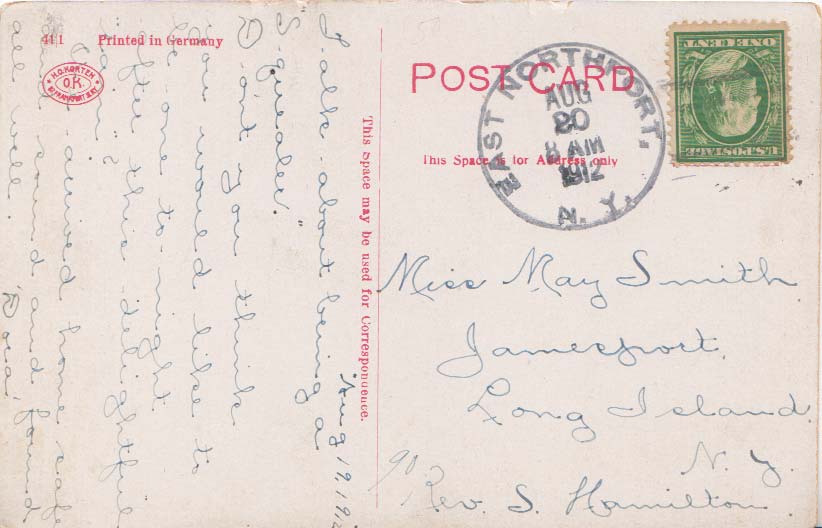 411 Printed in Germany
H.O. KORTEN
O.K.
POST CARD
This Space is for Address only
This Space may be used for Correspondence.
EAST NORTHPORT,
AUG
20
8 AM
1912
N.Y.
U.S. POSTAGE
ONE CENT
Aug 19, 1912
Talk about being a
"Squealer."
Don't you think
you would like to
be one to-night
after this delightful
Arrived home safe
and sound and found
all well.
Miss May Smith
Jamesport,
Long Island
N. Y.
Rev. S. Hamilton.